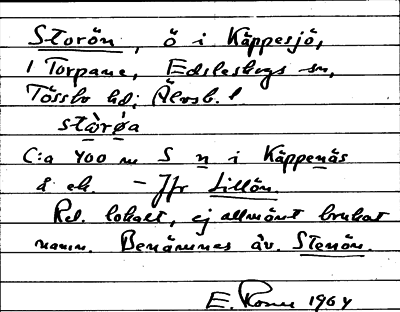 Storön, ö i Käppesjö,
i Torpane, Edsleskogs sn,
Tössbo hd; Älvsb. l
stàrǿa
C:a 400 m S n i Käppenäs
& ek. – Jfr Lillön.
Rel. lokalt, ej allmänt brukat
namn. Benämnes äv. Stenön.
E. 1964